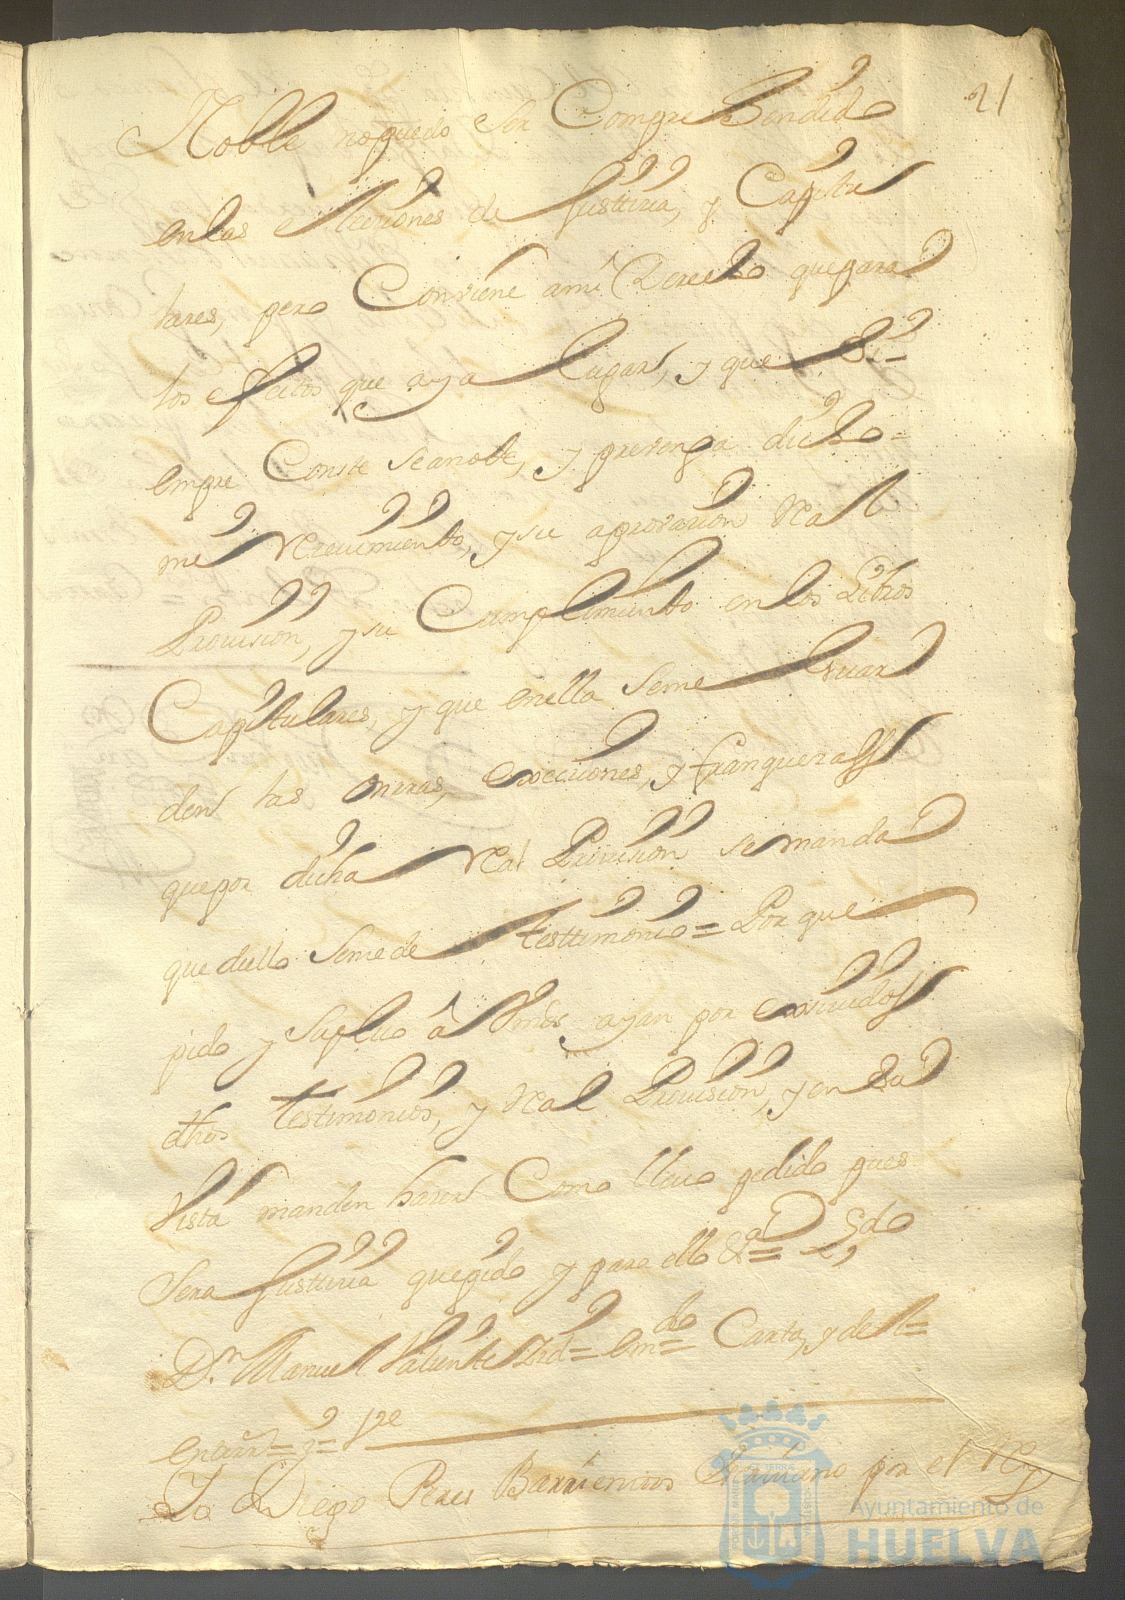 21
Noble no puedo ser Comprehendido
enlas elecciones de Justticia, y Capitu
lares, pero Conviene ami Derecho quepara
los efectos que aya Lugar, y que Si=
empre Conste Seanote, y prevenga dicho=
mi Recivimiento, ysu aprovacion Real
Provision, y su Cumplimiento enlos Libros
Capitulares, y que enella Seme Guar
den las onrras, exocciones, y franquezas
quepor dicha Real Provision semanda
que dello Semede testtimonio= Por que
pido y Suplico â Vmds, ayan por exsividos
dhos testimonios, y Real Provision, y en su
Vista manden hacer Como llevo pedido pues
Sera Justticia quepido y para ello &a=
Dn. Manuel Valiente= emdo= Carta, y del=
entrerrs= y=
Yo Diego Peres Barrientos Escrivano por el Rey
Ayuntamiento de
HUELVA